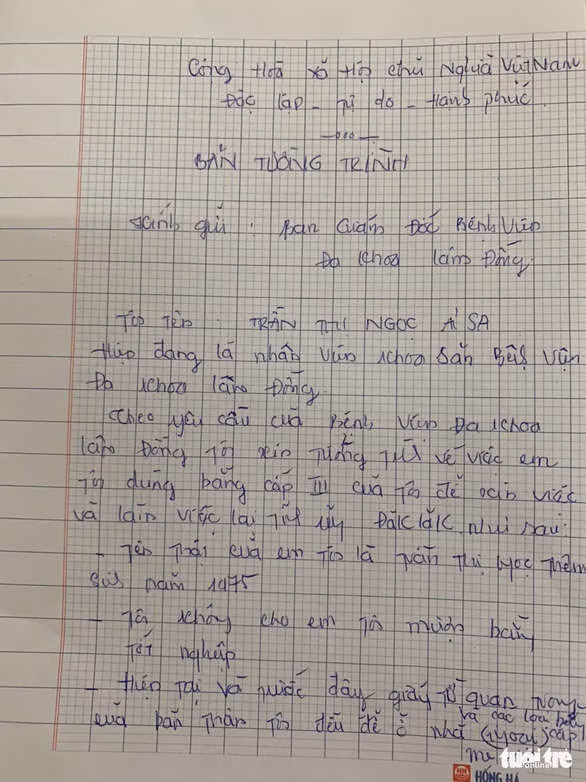 Cộng Hoà Xã Hội chủ Nghĩa Việt Nam
Độc lập - Tự do - Hạnh phúc
BẢN TƯỜNG TRÌNH
Kính gửi : Ban Giám Đốc Bệnh Viện
Đa khoa Lâm Đồng
Tôi tên : TRẦN THỊ NGỌC ÁI SA
Hiện đang là nhân viên khoa Sản Bệnh Viện
Đa khoa Lâm Đồng.
Theo yêu cầu của Bệnh Viện Đa khoa
Lâm Đồng Tôi xin tường trình về việc em
Tôi dùng bằng cấp III của tôi để xin việc
và làm việc tại Tỉnh ủy ĐăkLăk như sau:
- Tên thật của em tôi là Trần Thị Ngọc Thêm
Sinh năm 1975
- Tôi không cho em tôi mượn bằng
Tốt nghiệp
- Hiện tại và trước đây giấy tờ quan trọng
và các loại
của bản thân tôi đều để ở nhà
mẹ
tuổi trẻ
online
HỒNG HÀ